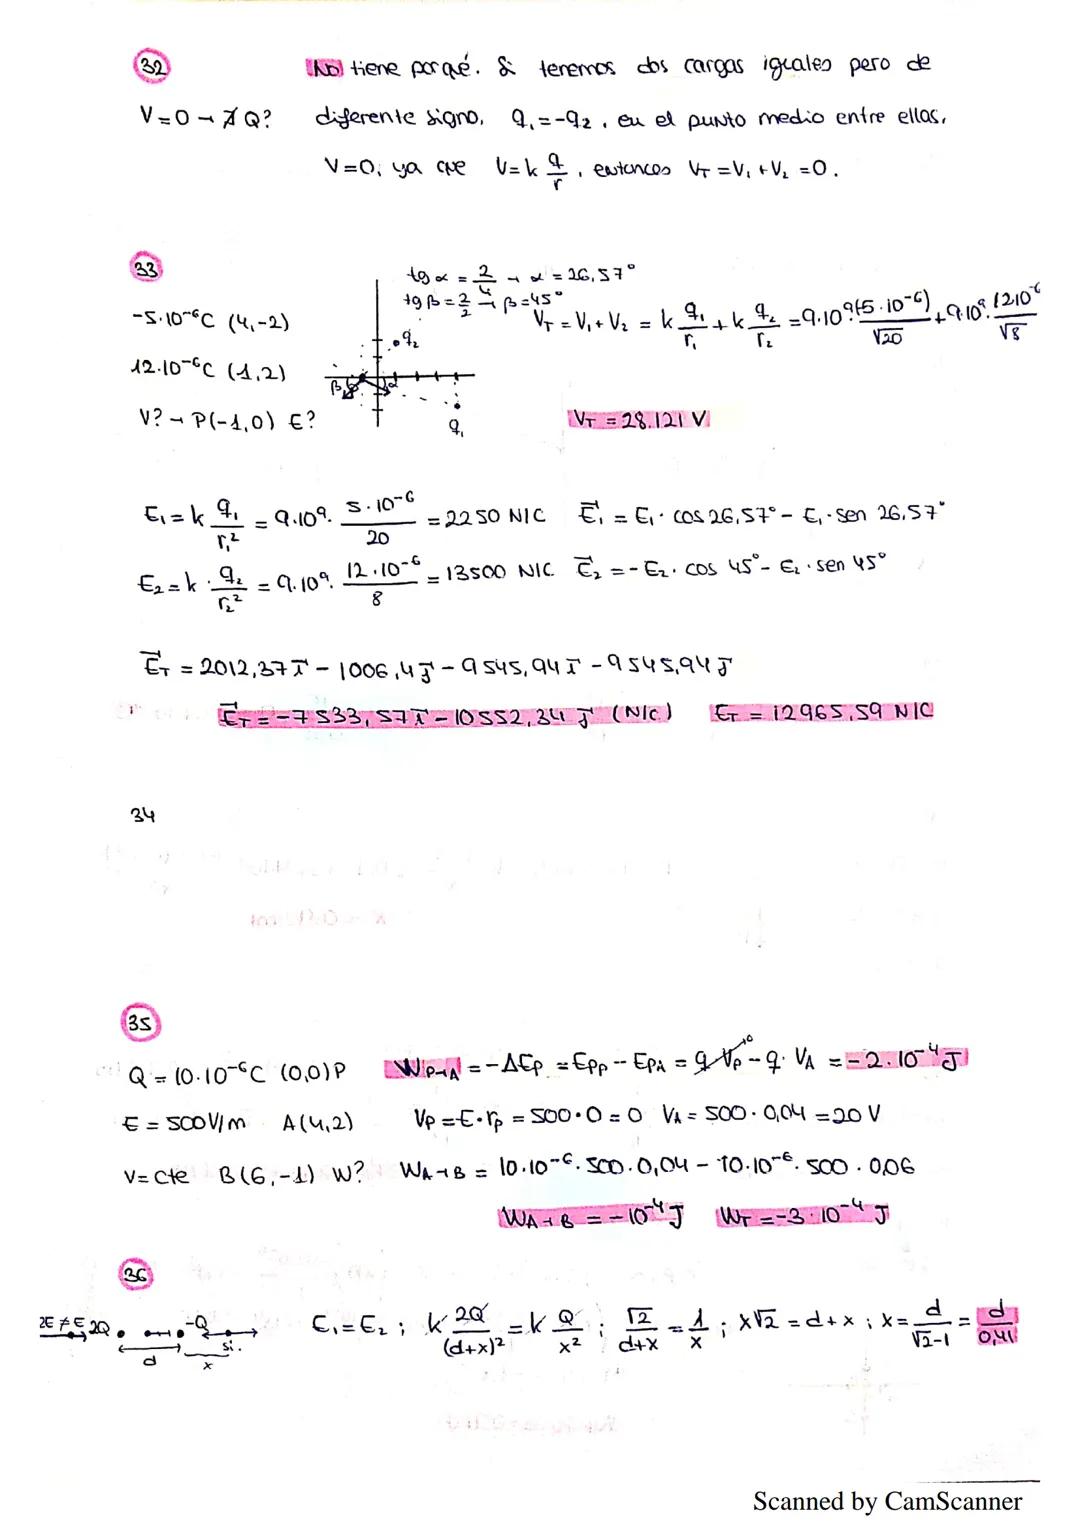 32
No tiene porqué. Si tenemos dos cargas iguales pero de
V=0 → ∄ Q? diferente signo, q₁=-q₂, en el punto medio entre ellas,
V=0, ya que V=k q/r, entonces V_T = V₁ + V₂ = 0.
33
tg α = 2/4 → α = 26,57°
tg β = 2/2 → β = 45°
-5·10⁻⁶C (4,-2)
V_T = V₁ + V₂ = k q₁/r₁ + k q₂/r₂ = 9·10⁹ (-5·10⁻⁶)/√20 + 9·10⁹· 12·10⁻⁶/√8
q₂
12·10⁻⁶C (1,2)
β α
V? → P(-1,0) E?
q₁
V_T = 28.121 V
E₁ = k q₁/r₁² = 9·10⁹· 5·10⁻⁶/20 = 2250 N/C E⃗₁ = E₁· cos 26,57° - E₁· sen 26,57°
E₂ = k · q₂/r₂² = 9·10⁹· 12·10⁻⁶/8 = 13500 N/C E⃗₂ = - E₂· cos 45° - E₂· sen 45°
E⃗_T = 2012,37 i⃗ - 1006,4 j⃗ - 9545,94 i⃗ - 9545,94 j⃗
E⃗_T = -7533,57 i⃗ - 10552,34 j⃗ (N/C) E_T = 12965,59 N/C
34
35
Q = 10·10⁻⁶C (0,0)P W_P→A = -ΔEp = Ep_P - Ep_A = q·V_P⁰ - q·V_A = -2·10⁻⁴ J
E = 500V/m A(4,2) V_P = E·r_P = 500·0 = 0 V_A = 500·0,04 = 20 V
V=cte B(6,-1) W? W_A→B = 10·10⁻⁶·500·0,04 - 10·10⁻⁶·500·0,06
W_A→B = -10⁻⁴ J W_T = -3·10⁻⁴ J
36
2E ≠ E 2Q -Q si. d x
E₁=E₂ ; k 2Q/(d+x)² = k Q/x² ; √2/(d+x) = 1/x ; x√2 = d+x ; x = d/(√2-1) = d/0,41
Scanned by CamScanner